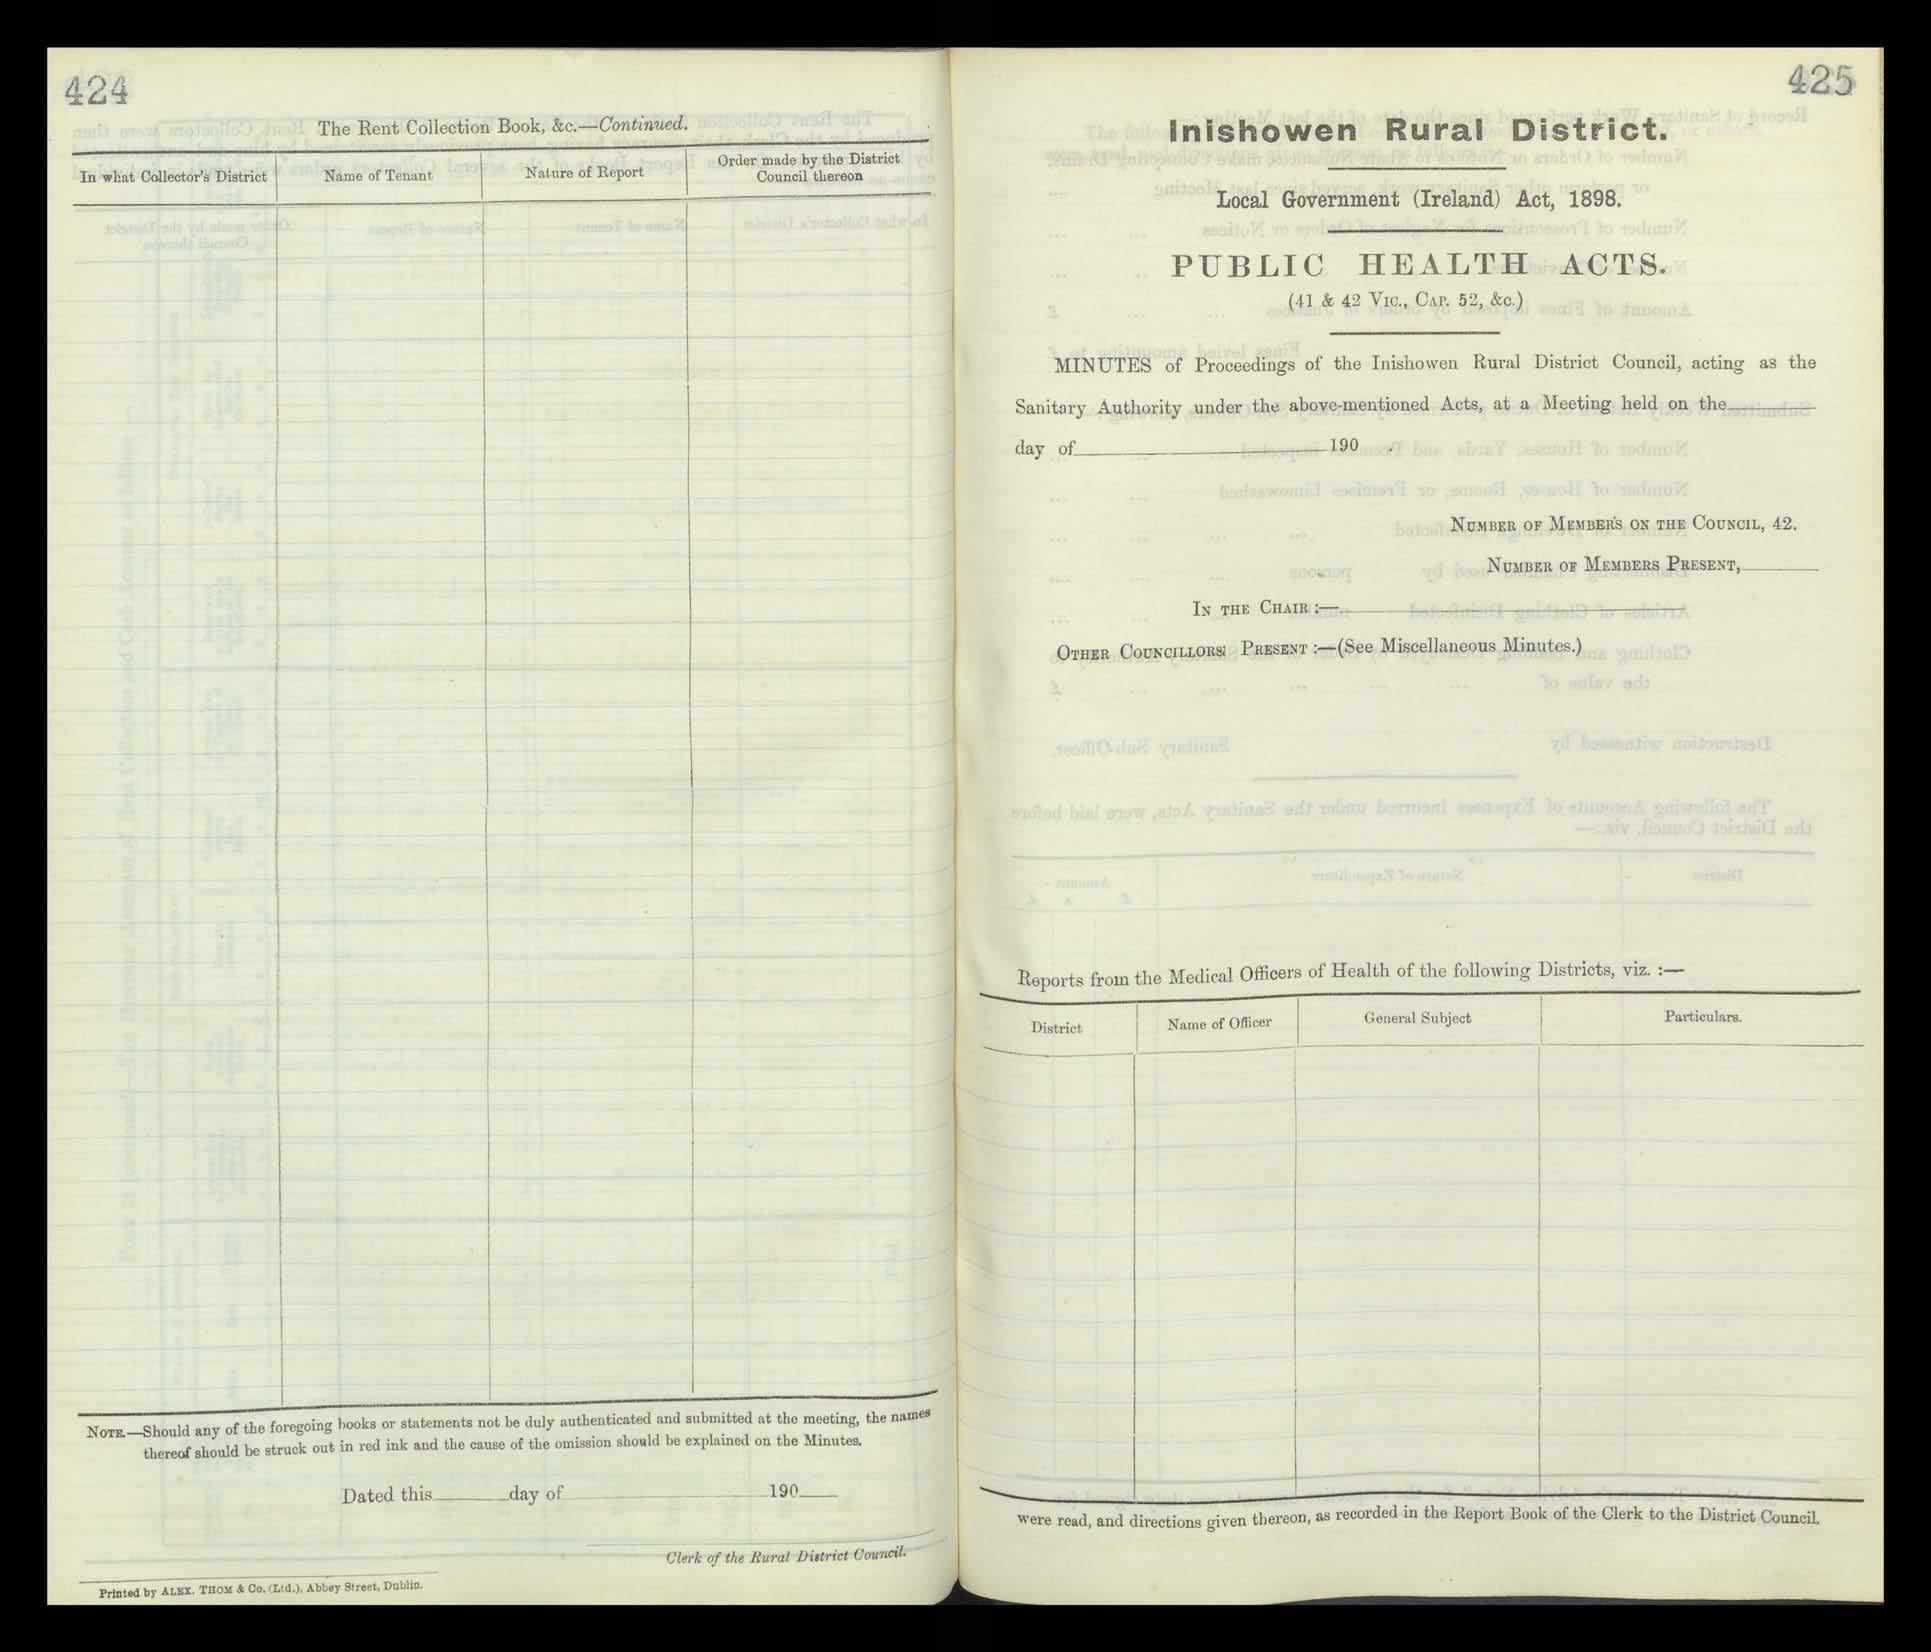 424
The Rent Collection Book, &c.—Continued.
In what Collector's District
Name of Tenant
Nature of Report
Order made by the District
Council thereon
NOTE.—Should any of the foregoing books or statements not be duly authenticated and submitted at the meeting, the names
thereof should be struck out in red ink and the cause of the omission should be explained on the Minutes.
Dated this day of 190
Clerk of the Rural District Council.
Printed by ALEX. THOM & Co. (Ltd.), Abbey Street, Dublin.
425
Inishowen Rural District.
Local Government (Ireland) Act, 1898.
PUBLIC HEALTH ACTS.
(41 & 42 VIC., CAP. 52, &c.)
MINUTES of Proceedings of the Inishowen Rural District Council, acting as the
Sanitary Authority under the above-mentioned Acts, at a Meeting held on the
day of 190 .
NUMBER OF MEMBERS ON THE COUNCIL, 42.
NUMBER OF MEMBERS PRESENT,
IN THE CHAIR :—
OTHER COUNCILLORS PRESENT :—(See Miscellaneous Minutes.)
Reports from the Medical Officers of Health of the following Districts, viz. :—
District
Name of Officer
General Subject
Particulars.
were read, and directions given thereon, as recorded in the Report Book of the Clerk to the District Council.